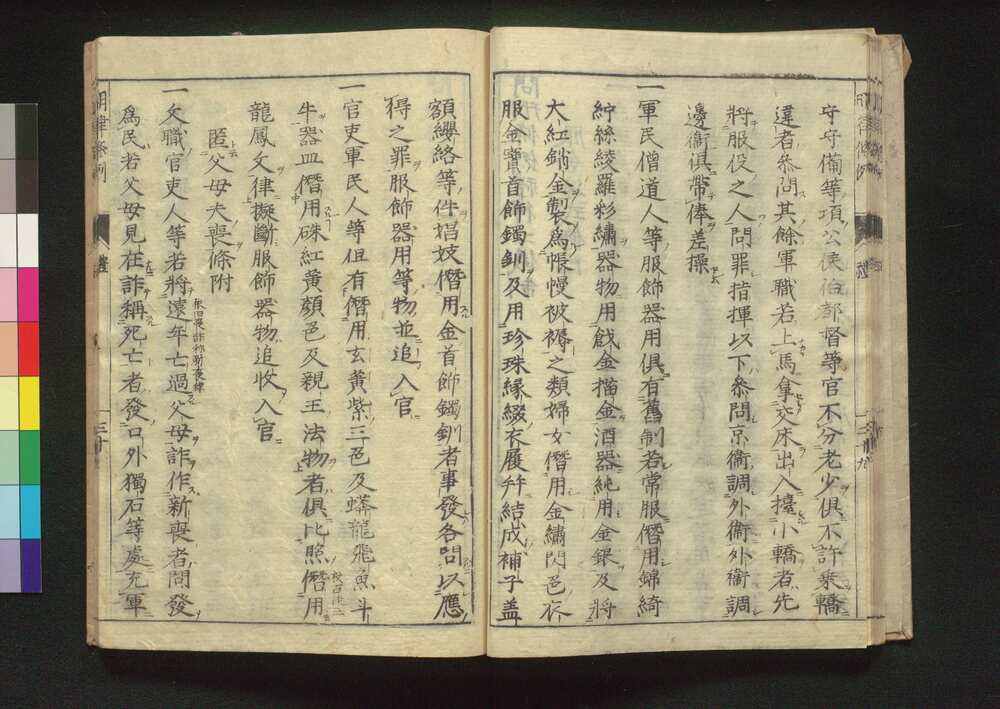 守守備等項公侯伯都督等官不分老少俱不許乘轎
違者叅問其餘軍職若上馬拿交床出入擡小轎者先
將服役之人問罪指揮以下叅問京衞調外衞外衞調
邊衞俱帶俸差操
一軍民僧道人等服飾器用俱有舊制若常服僭用錦綺
紵絲綾羅彩繡器物用戧金描金酒器純用金銀及將
大紅銷金製爲帳幔被褥之類婦女僭用金繡閃色衣
服金寶首飾鐲釧及用珍珠緣綴衣履幷結成補子盖
額纓絡等件娼妓僭用金首飾鐲釧者事發各問以應
得之罪服飾器用等物並追入官
一官吏軍民人等但有僭用玄黃紫三色及蟒龍飛魚斗
牛器皿僭用硃紅黃顏色及親王法物者俱比照僭用
龍鳳文律擬斷服飾器物追收入官
匿父母夫喪條附
一文職官吏人等若將遠年亡過父母詐作新喪者問發
爲民若父母見在詐稱死亡者發口外獨石等處充軍
明律條例
禮
三十
禮